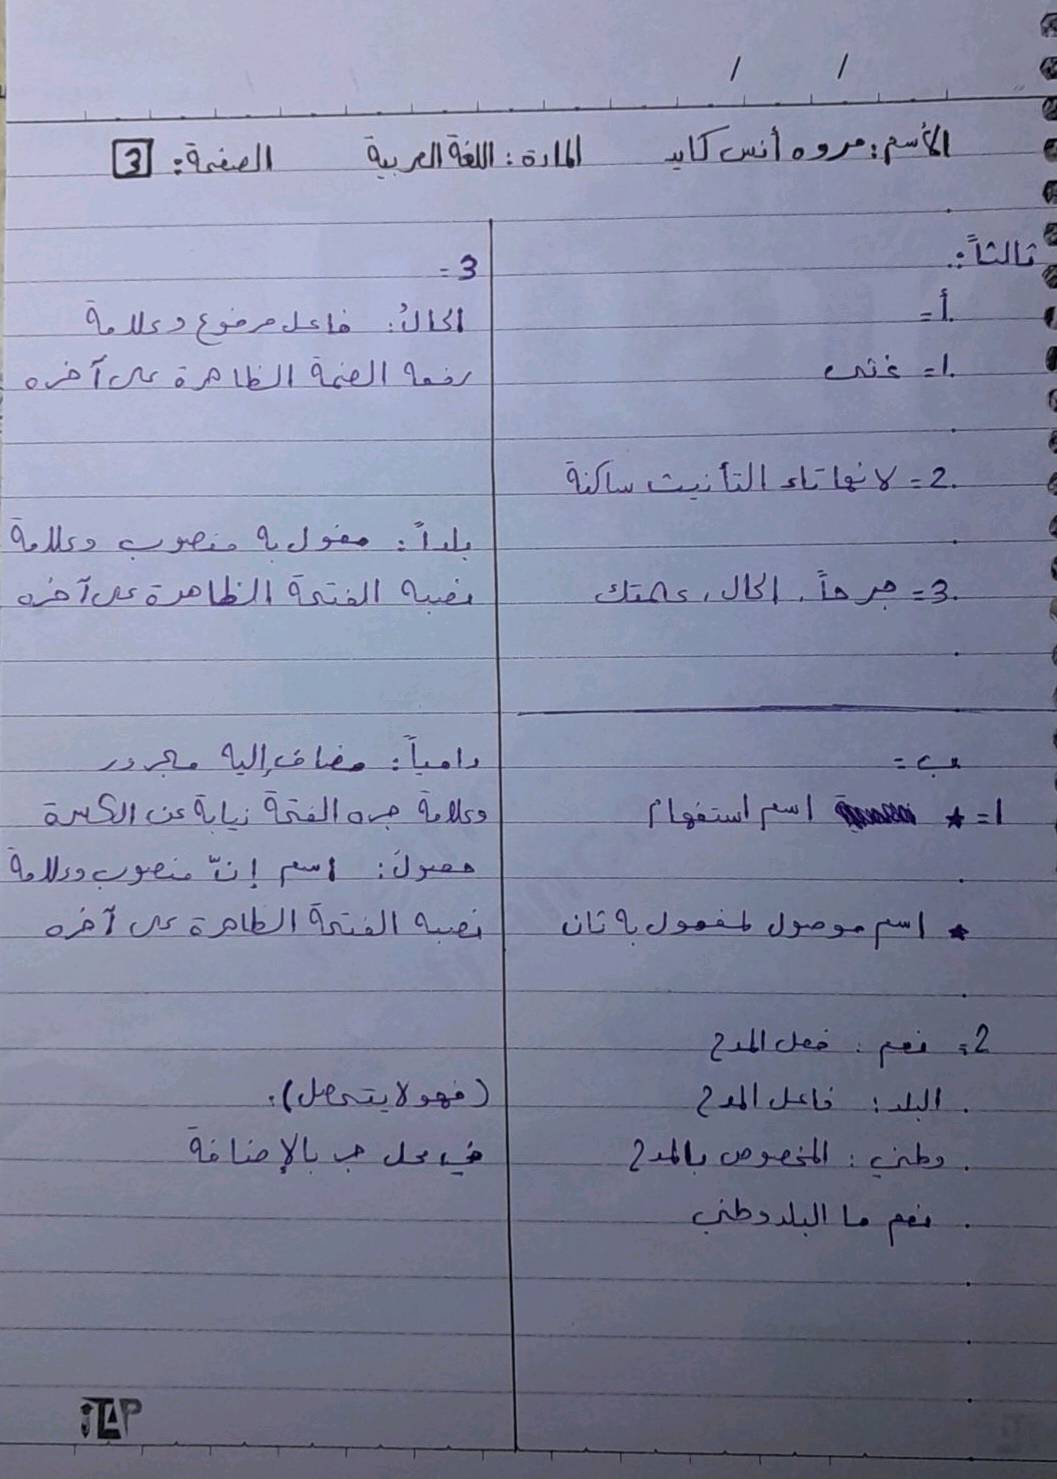 الأسم: مروه أنس كايد المادة: اللغة العربية الصفحة: 3
ثالثاً:
أ=
1= غنى
2= لانها تاء التأنيث ساكنة
3= جرحاً، الحال، عمتك
ب=
1= * اسم استفهام
* اسم موصول لمفعول به ثان
2= نعم: فعل المدح
البلد: فاعل المدح
وطني: المخصوص بالمدح
نعم ما البلد وطني
3=
الحالُ: فاعل مرفوع وعلامة
رفعه الضمة الظاهرة على آخره
بلداً: مفعول به منصوب وعلامة
نصبه الفتحة الظاهرة على آخره
دامياً: مضاف إليه مجرور
وعلامة جره الفتحة نيابة عن الكسرة
حصولَ: اسم إنّ منصوب وعلامة
نصبه الفتحة الظاهرة على آخره
(فهو لا يتحمل).
في محل جر بالإضافة
iTAP